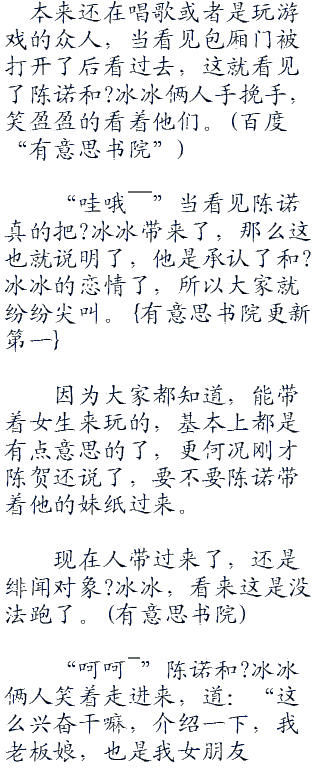 本来还在唱歌或者是玩游
戏的众人，当看见包厢门被
打开了后看过去，这就看见
了陈诺和?冰冰俩人手挽手，
笑盈盈的看着他们。(百度
“有意思书院”)
“哇哦——”当看见陈诺
真的把?冰冰带来了，那么这
也就说明了，他是承认了和?
冰冰的恋情了，所以大家就
纷纷尖叫。{有意思书院更新
第一}
因为大家都知道，能带
着女生来玩的，基本上都是
有点意思的了，更何况刚才
陈贺还说了，要不要陈诺带
着他的妹纸过来。
现在人带过来了，还是
绯闻对象?冰冰，看来这是没
法跑了。(有意思书院)
“呵呵~”陈诺和?冰冰
俩人笑着走进来，道：“这
么兴奋干嘛，介绍一下，我
老板娘，也是我女朋友